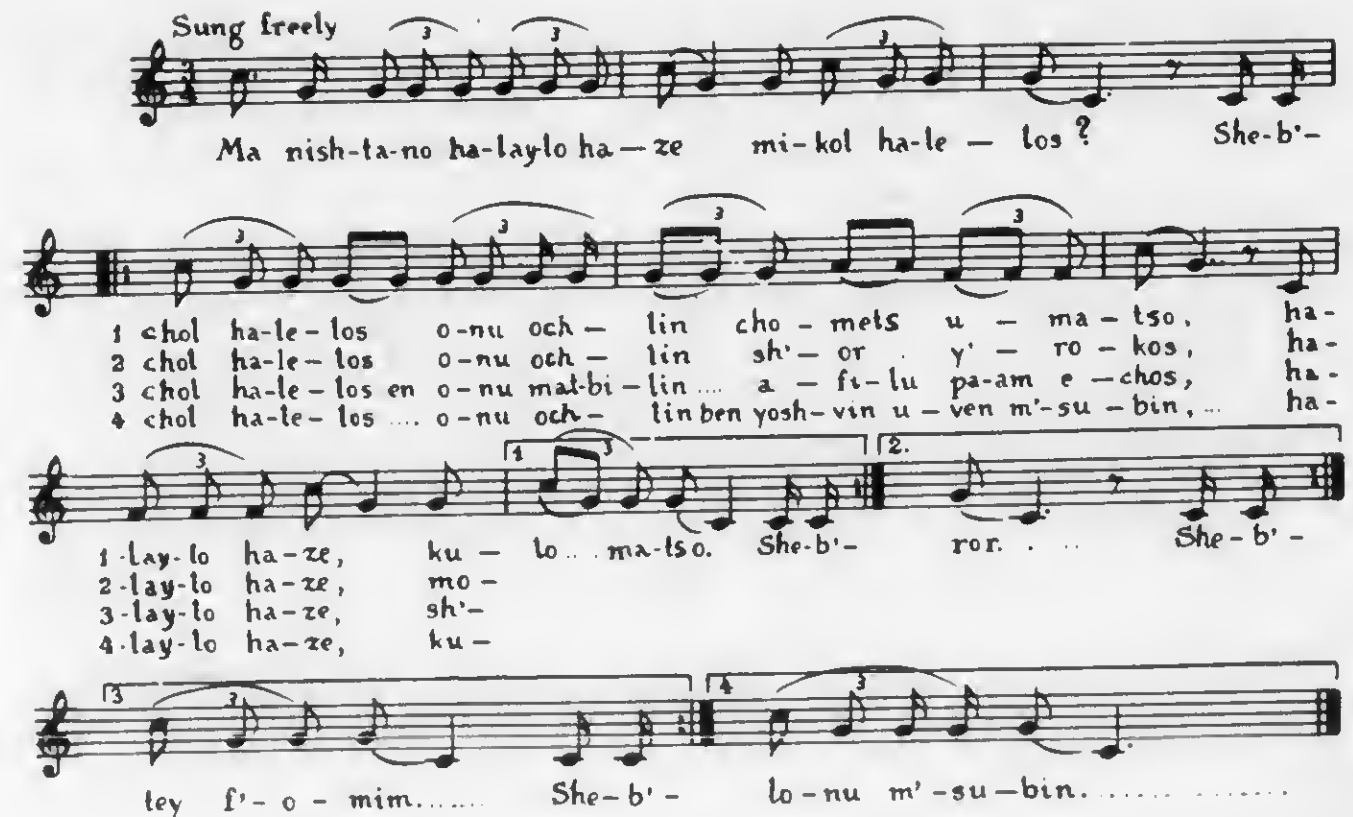 Sung freely
3 3 3
3
4
Ma nish-ta-no ha-lay-lo ha—ze mi-kol ha-le—los? She-b'-
3 3 3 3
1 chol ha-le-los o-nu och— lin cho-mets u—ma-tso, ha-
2 chol ha-le-los o-nu och— lin sh'-or y'-ro-kos, ha-
3 chol ha-le-los en o-nu mat-bi-lin.... a-fi-lu pa-am e-chos, ha-
4 chol ha-le-los .... o-nu och- lin ben yosh-vin u-ven m'-su-bin,... ha-
3 1 3 2.
1-lay-lo ha-ze, ku— lo... ma-tso. She-b'- ror. . .. She-b'-
2-lay-lo ha-ze, mo-
3-lay-lo ha-ze, sh'-
4-lay-lo ha-ze, ku—
3 3 4 3
tey f'-o-mim....... She-b'- lo-nu m'-su-bin...............